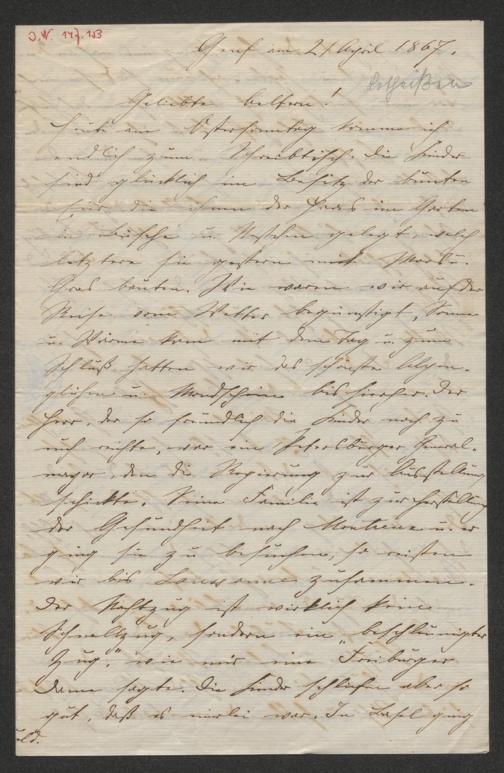 I.N. 147.133
Genf am 21 April 1867.
Geliebte Eltern!
Heute am Ostersonntag komme ich
endlich zum Schreibtisch. Die Kinder
sind glücklich im Besitz der bunten
Eier die ihnen der Haas im Garten
in Büsche u. Nestchen gelegt, welch
letztere sie gestern mit Moos u.
Gras bauten. Wie waren wir auf der
Reise vom Wetter begünstigt, Sonne
u. Wärme kam mit dem Tag u. zum
Schluß hatten wir das schönste Alpen-
glühen u. Mondschein bis hierher. Der
Herr, der so freundlich die Kinder noch zu
mir reichte, war ein Petersburger General-
major, den die Regierung zur Ausstellung
schickte. Seine Familie ist zur Herstellung
der Gesundheit nach Montreux u. er
ging sie zu besuchen, so reisten
wir bis Lausanne zusammen.
Der Nachtzug ist wirklich kein
Schnellzug, sondern ein „beschleunigter
Zug", wie mir eine Freiburger
Dame sagte. Die Kinder schliefen aber so
gut, daß es einerlei war. In Basel ging